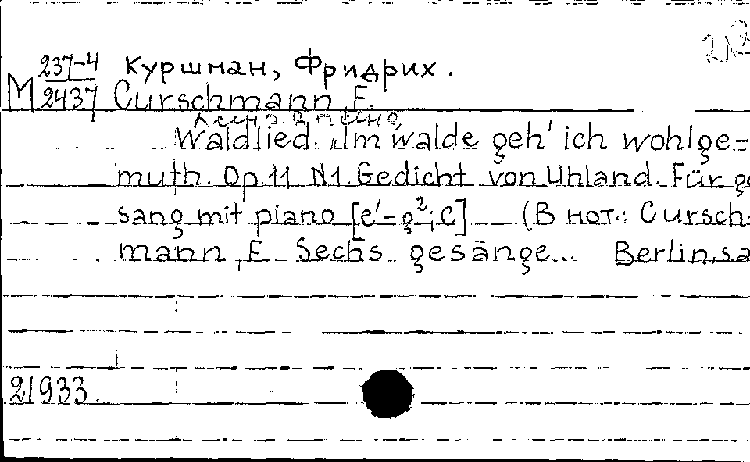 237-4 Куршман, Фридрих.
М 2437 Curschmann, F.
Waldlied. „Im walde geh' ich wohlge=
muth. Op 11 N1. Gedicht von Uhland. Für ge
sang mit piano [e'-g²; C] (В нот.: Cursch-
mann, F. Sechs gesänge... Berlin, sa
21933